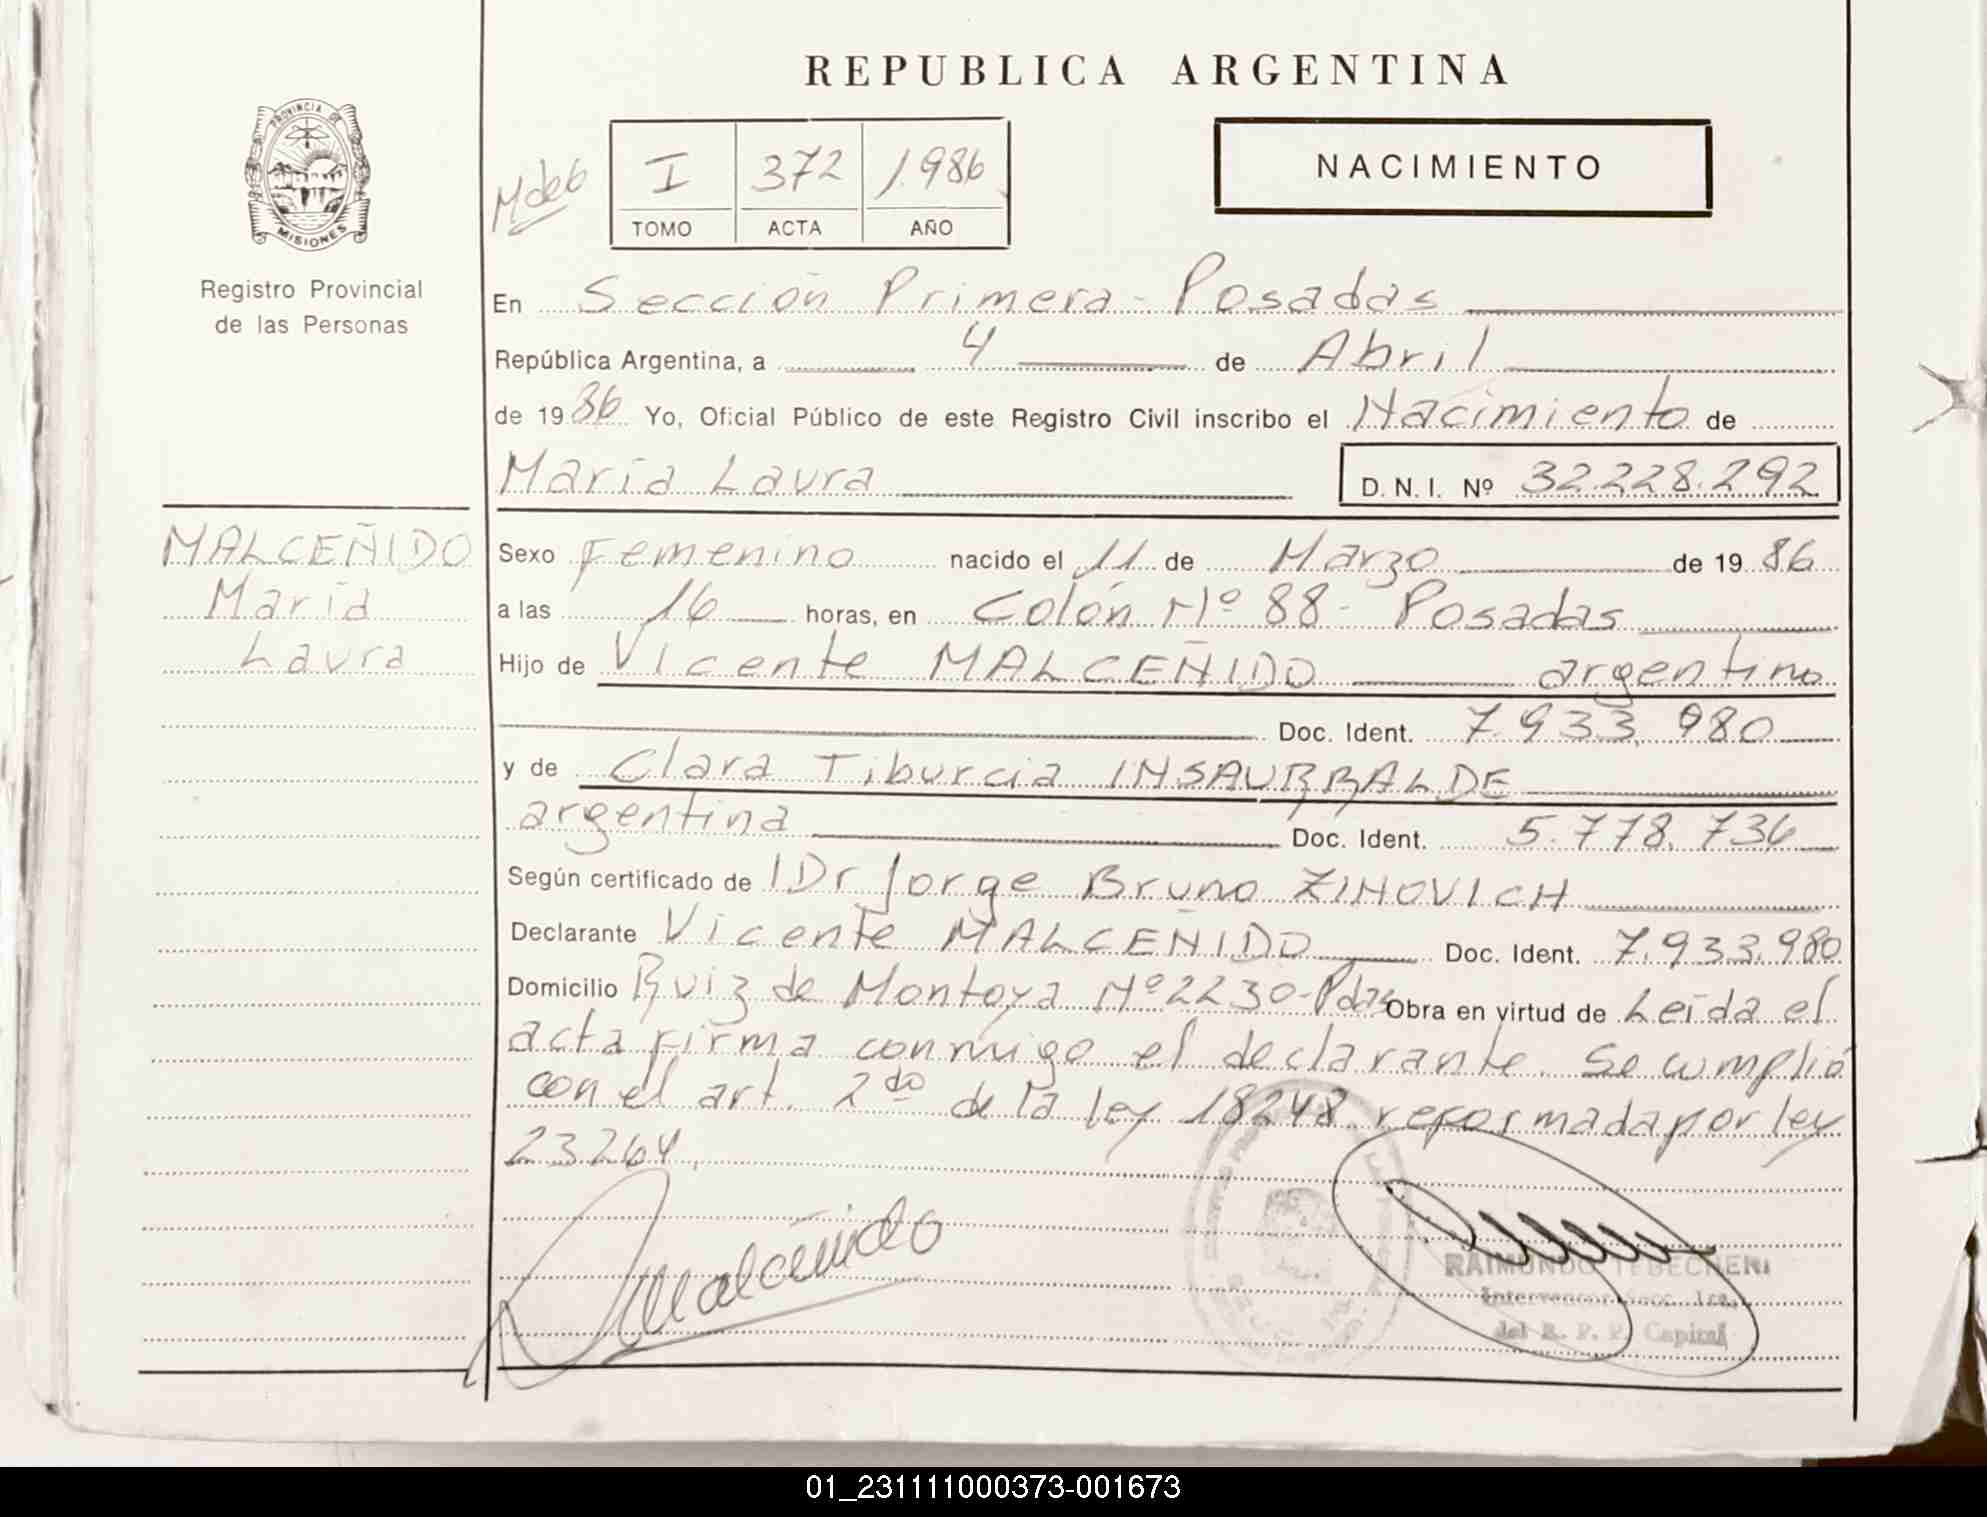 REPUBLICA ARGENTINA
PROVINCIA DE
MISIONES
Registro Provincial
de las Personas
I 372 1.986
TOMO ACTA AÑO
NACIMIENTO
En Sección Primera - Posadas
República Argentina, a 4 de Abril
de 1986 Yo, Oficial Público de este Registro Civil inscribo el Nacimiento de
María Laura D.N.I. Nº 32.228.292
MALCEÑIDO
María
Laura
Sexo Femenino nacido el 11 de Marzo de 1986
a las 16 horas, en Colón Nº 88 - Posadas
Hijo de Vicente MALCEÑIDO argentino
Doc. Ident. 7.933.980
y de Clara Tiburcia INSAURRALDE
argentina Doc. Ident. 5.778.736
Según certificado de Dr Jorge Bruno ZINOVICH
Declarante Vicente MALCEÑIDO Doc. Ident. 7.933.980
Domicilio Ruiz de Montoya Nº 2230 - Pdas Obra en virtud de Leída el
acta firma conmigo el declarante. Se cumplió
con el art. 2do de la ley 18248 reformada por ley
23264.
Malceñido
RAIMUNDO TEBECHERI
Interventor Secc. 1ra.
del R. P. P. Capital
01_231111000373-001673